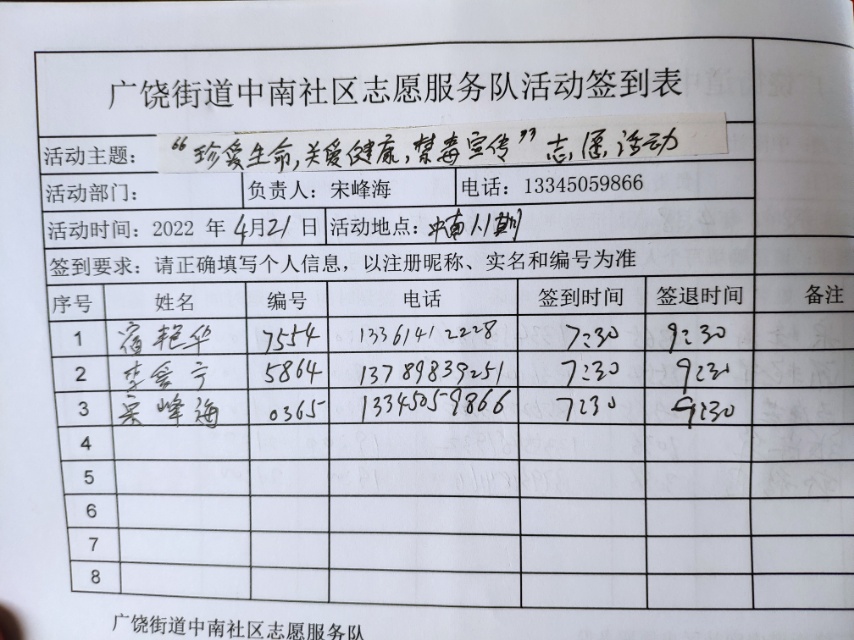 广饶街道中南社区志愿服务队活动签到表
活动主题： “珍爱生命，关爱健康，禁毒宣传”志愿活动
活动部门： 负责人：宋峰海 电话：13345059866
活动时间：2022 年 4月21 日 活动地点：中南 期
签到要求：请正确填写个人信息，以注册昵称、实名和编号为准
序号 姓名 编号 电话 签到时间 签退时间 备注
1 宿艳华 7554 13361412228 7:30 9:30
2 爱宁 5864 13789839251 7:30 9:30
3 宋峰海 0365 13345059866 7:30 9:30
4
5
6
7
8
广饶街道中南社区志愿服务队